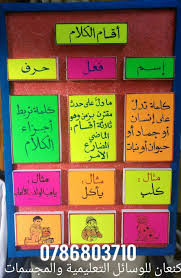 أقسام الكلام
إسم
فعل
حرف
كلمة تدل
على إنسان
أو جماد أو
حيوان أو نبات
ما دل على حدث
مقترن بزمن وهو
ثلاثة أقسام:
الماضي
المضارع
الأمر
كلمة تربط
أجزاء
الكلام
مثال:
كلب
مثال:
يأكل
مثال:
0786803710
كنعان للوسائل التعليمية والمجسمات